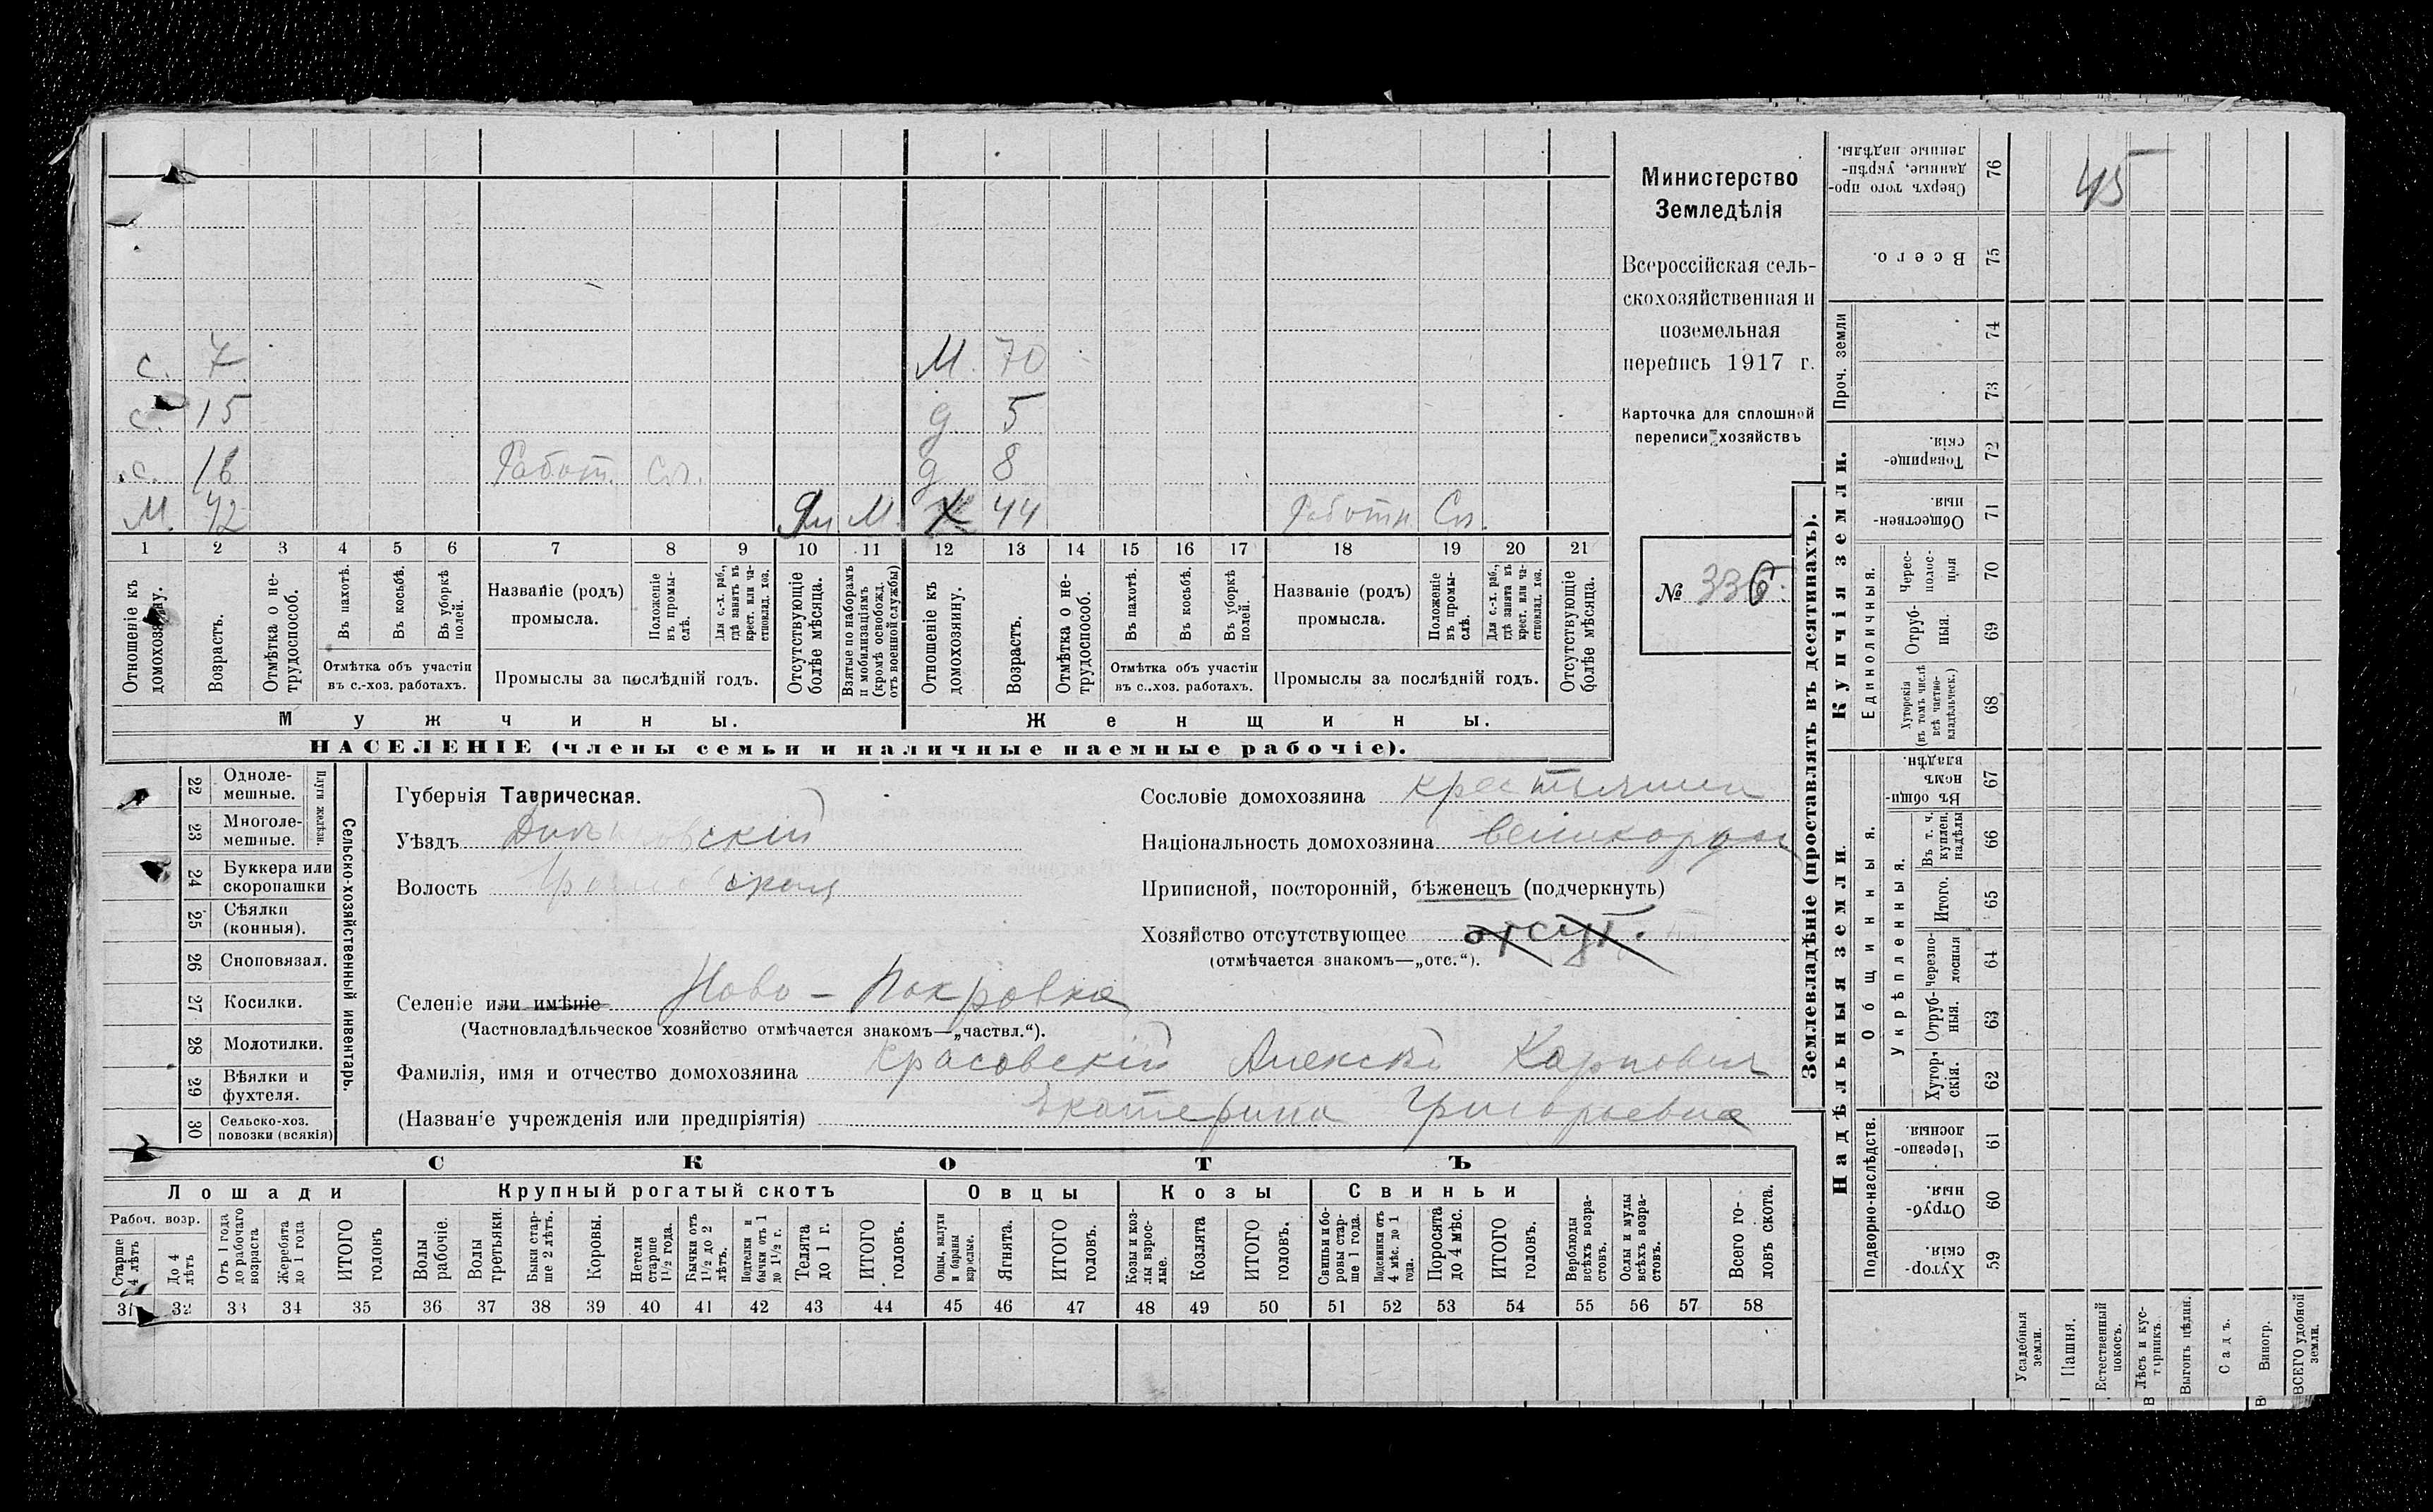 с. 7 М. 70
с. 15 д 5
с. 16 Работ. Сл. д 8
М. 42 Ян М. Ж 44 Работн Сл.
1 2 3 4 5 6 7 8 9 10 11 12 13 14 15 16 17 18 19 20 21
Отношеніе къ домохозяину.
Возрастъ.
Отмѣтка о не-трудоспособ.
Въ пахотѣ.
Въ косьбѣ.
Въ уборкѣ полей.
Отмѣтка объ участіи
въ с.-хоз. работахъ.
Названіе (родъ)
промысла.
Положеніе въ промы-слѣ.
Для с.-х. раб., гдѣ занятъ въ крест. или ча-стновлад. хоз.
Промыслы за послѣдній годъ.
Отсутствующіе болѣе мѣсяца.
Взятые по наборамъ и мобилизаціямъ (кромѣ освобожд. отъ военной службы)
Отношеніе къ домохозяину.
Возрастъ.
Отмѣтка о не-трудоспособ.
Въ пахотѣ.
Въ косьбѣ.
Въ уборкѣ полей.
Отмѣтка объ участіи
въ с.-хоз. работахъ.
Названіе (родъ)
промысла.
Положеніе въ промы-слѣ.
Для с.-х. раб., гдѣ занята въ крест. или ча-стновлад. хоз.
Промыслы за послѣдній годъ.
Отсутствующіе болѣе мѣсяца.
Мужчины. Женщины.
НАСЕЛЕНІЕ (члены семьи и наличные наемные рабочіе).
Министерство
Земледѣлія
Всероссійская сель-
скохозяйственная и
поземельная
перепись 1917 г.
Карточка для сплошной
переписи хозяйствъ
№ 336
22 Одноле-мешные.
23 Многоле-мешные.
Плуги желѣзн.
24 Буккера или скоропашки
25 Сѣялки (конныя).
26 Сноповязал.
27 Косилки.
28 Молотилки.
29 Вѣялки и фухтеля.
30 Сельско-хоз. повозки (всякія)
Сельско-хозяйственный инвентарь.
Губернія Таврическая.
Уѣздъ Днѣпровскій
Волость
Селеніе или имѣніе Ново-Покровка
(Частновладѣльческое хозяйство отмѣчается знакомъ—„частвл.“).
Фамилія, имя и отчество домохозяина Красовскій Алексѣй Карповичъ
(Названіе учрежденія или предпріятія) Екатерина Григорьевна
Сословіе домохозяина крестьянин
Національность домохозяина великоросс
Приписной, посторонній, бѣженецъ (подчеркнуть)
Хозяйство отсутствующее отсут.
(отмѣчается знакомъ—„отс.“).
СКОТЪ
Лошади Крупный рогатый скотъ Овцы Козы Свиньи
Рабоч. возр.
Старше 4 лѣтъ
До 4 лѣтъ
Отъ 1 года до рабочаго возраста
Жеребята до 1 года
ИТОГО головъ
Волы рабочіе.
Волы третьяки.
Быки стар-ше 2 лѣтъ.
Коровы.
Нетели старше 1½ года.
Бычки отъ 1½ до 2 лѣтъ.
Подтелки и бычки отъ 1 до 1½ г.
Телята до 1 г.
ИТОГО головъ.
Овцы, валухи и бараны взрослые.
Ягнята.
ИТОГО головъ.
Козы и коз-лы взрос-лые.
Козлята
ИТОГО головъ.
Свиньи и бо-ровы стар-ше 1 года.
Подсвинки отъ 4 мѣс. до 1 года.
Поросята до 4 мѣс.
ИТОГО головъ.
Верблюды всѣхъ возра-стовъ.
Ослы и мулы всѣхъ возра-стовъ.
Всего го-ловъ скота.
31 32 33 34 35 36 37 38 39 40 41 42 43 44 45 46 47 48 49 50 51 52 53 54 55 56 57 58
Землевладѣніе (проставлять въ десятинахъ).
Надѣльныя земли.
Купчія земли.
Проч. земли
Подворно-наслѣдств.
Общинныя.
Укрѣпленныя.
Единоличныя.
Сверхъ того про-данные, укрѣп-ленные надѣлы. 76 45
Всего. 75
74
73
Товарище-скія. 72
Обществен-ныя. 71
Черес-полос-ныя 70
Отруб-ныя. 69
Хуторскія (въ томъ числѣ всѣ частно-владѣльческ.) 68
Въ общи-номъ владѣн. 67
Въ т. ч. куплен. надѣлы 66
Итого. 65
черезпо-лосныя 64
Отруб-ныя. 63
Хутор-скія. 62
Черезпо-лосныя. 61
Отруб-ныя. 60
Хутор-скія. 59
Усадебныя земли.
Пашня.
Естественный покосъ.
Лѣсъ и кус-тарникъ.
Выгонъ цѣлин.
Садъ.
Виногр.
ВСЕГО удобной земли.